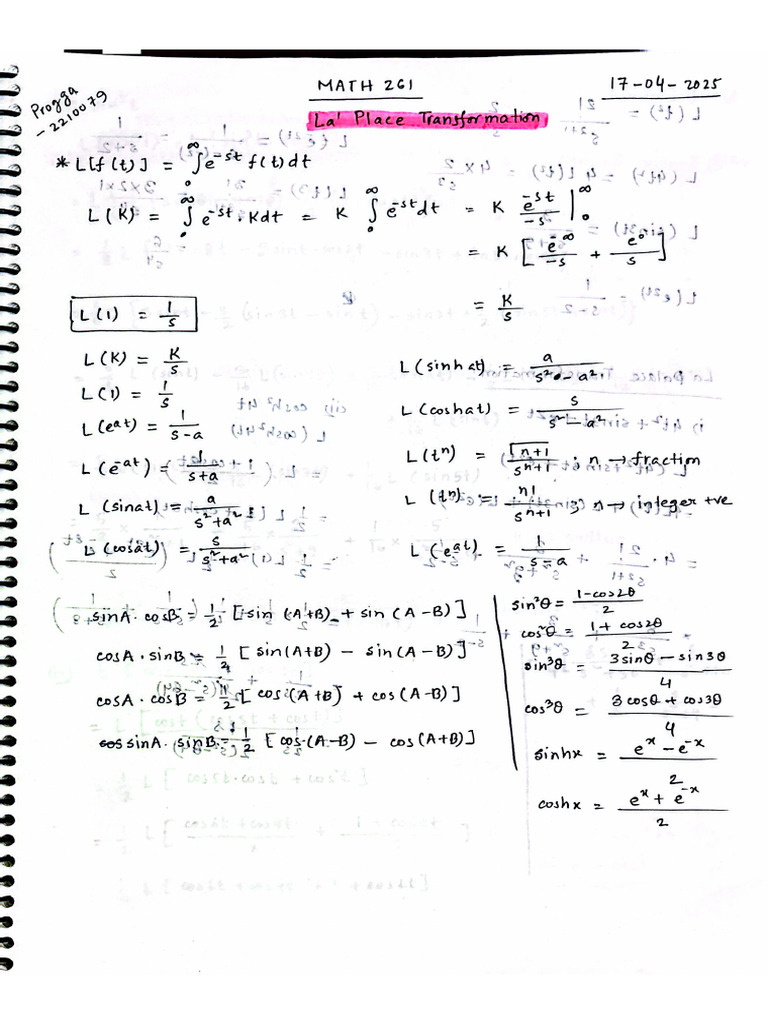 MATH 261
17-04-2025
Progga
- 2210079
La' Place Transformation
* L[f(t)] = ∫₀^∞ e^-st f(t) dt
L(K) = ∫₀^∞ e^-st · K dt = K ∫₀^∞ e^-st dt = K e^-st/-s |₀^∞
= K [ e^-∞/-s + e^0/s ]
= K/s
L(1) = 1/s
L(K) = K/s
L(1) = 1/s
L(e^at) = 1/(s-a)
L(e^-at) = 1/(s+a)
L(sinat) = a/(s²+a²)
L(cosat) = s/(s²+a²)
L(sinhat) = a/(s²-a²)
L(coshat) = s/(s²-a²)
L(t^n) = Γn+1/s^n+1 ; n → fraction
L(t^n) = n!/s^n+1 ; n → integer +ve
L(e^at) = 1/(s-a)
sinA · cosB = 1/2 [sin (A+B) + sin (A-B)]
cosA · sinB = 1/2 [sin(A+B) - sin(A-B)]
cosA · cosB = 1/2 [cos(A+B) + cos(A-B)]
sinA · sinB = 1/2 [cos(A-B) - cos(A+B)]
sin²θ = (1-cos2θ)/2
cos²θ = (1+cos2θ)/2
sin³θ = (3sinθ - sin3θ)/4
cos³θ = (3cosθ + cos3θ)/4
sinhx = (e^x - e^-x)/2
coshx = (e^x + e^-x)/2